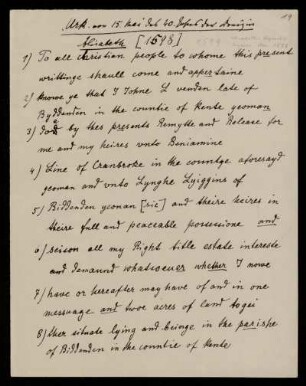 Urk. von 15. Mai des 20. Jahres der Königin
Elisabeth [1578]
1) To all christian people to whome this present
writtinge shaull come and appertaine
2) knowe ye that I Johne L venden late of
Byddenden in the countie of Kente yeoman
3) doe by ther presents Remytte and Release for
me and my heires vnto Beniamine
4) Line of Cranbroke in the countye aforesayd
yeoman and vnto Lynghe Lyiggins of
5) Biddenden yeonan [sic] and theire heires in
theire full and peaceable possessione and
6) seison all my Right title estate intereste
and demaund whatsoeuer whether I nowe
7) have or hereafter may have of and in one
messuage and twoe acres of land toge
8) ther situate lying and beinge in the parishe
of Biddenden in the countie of Kente